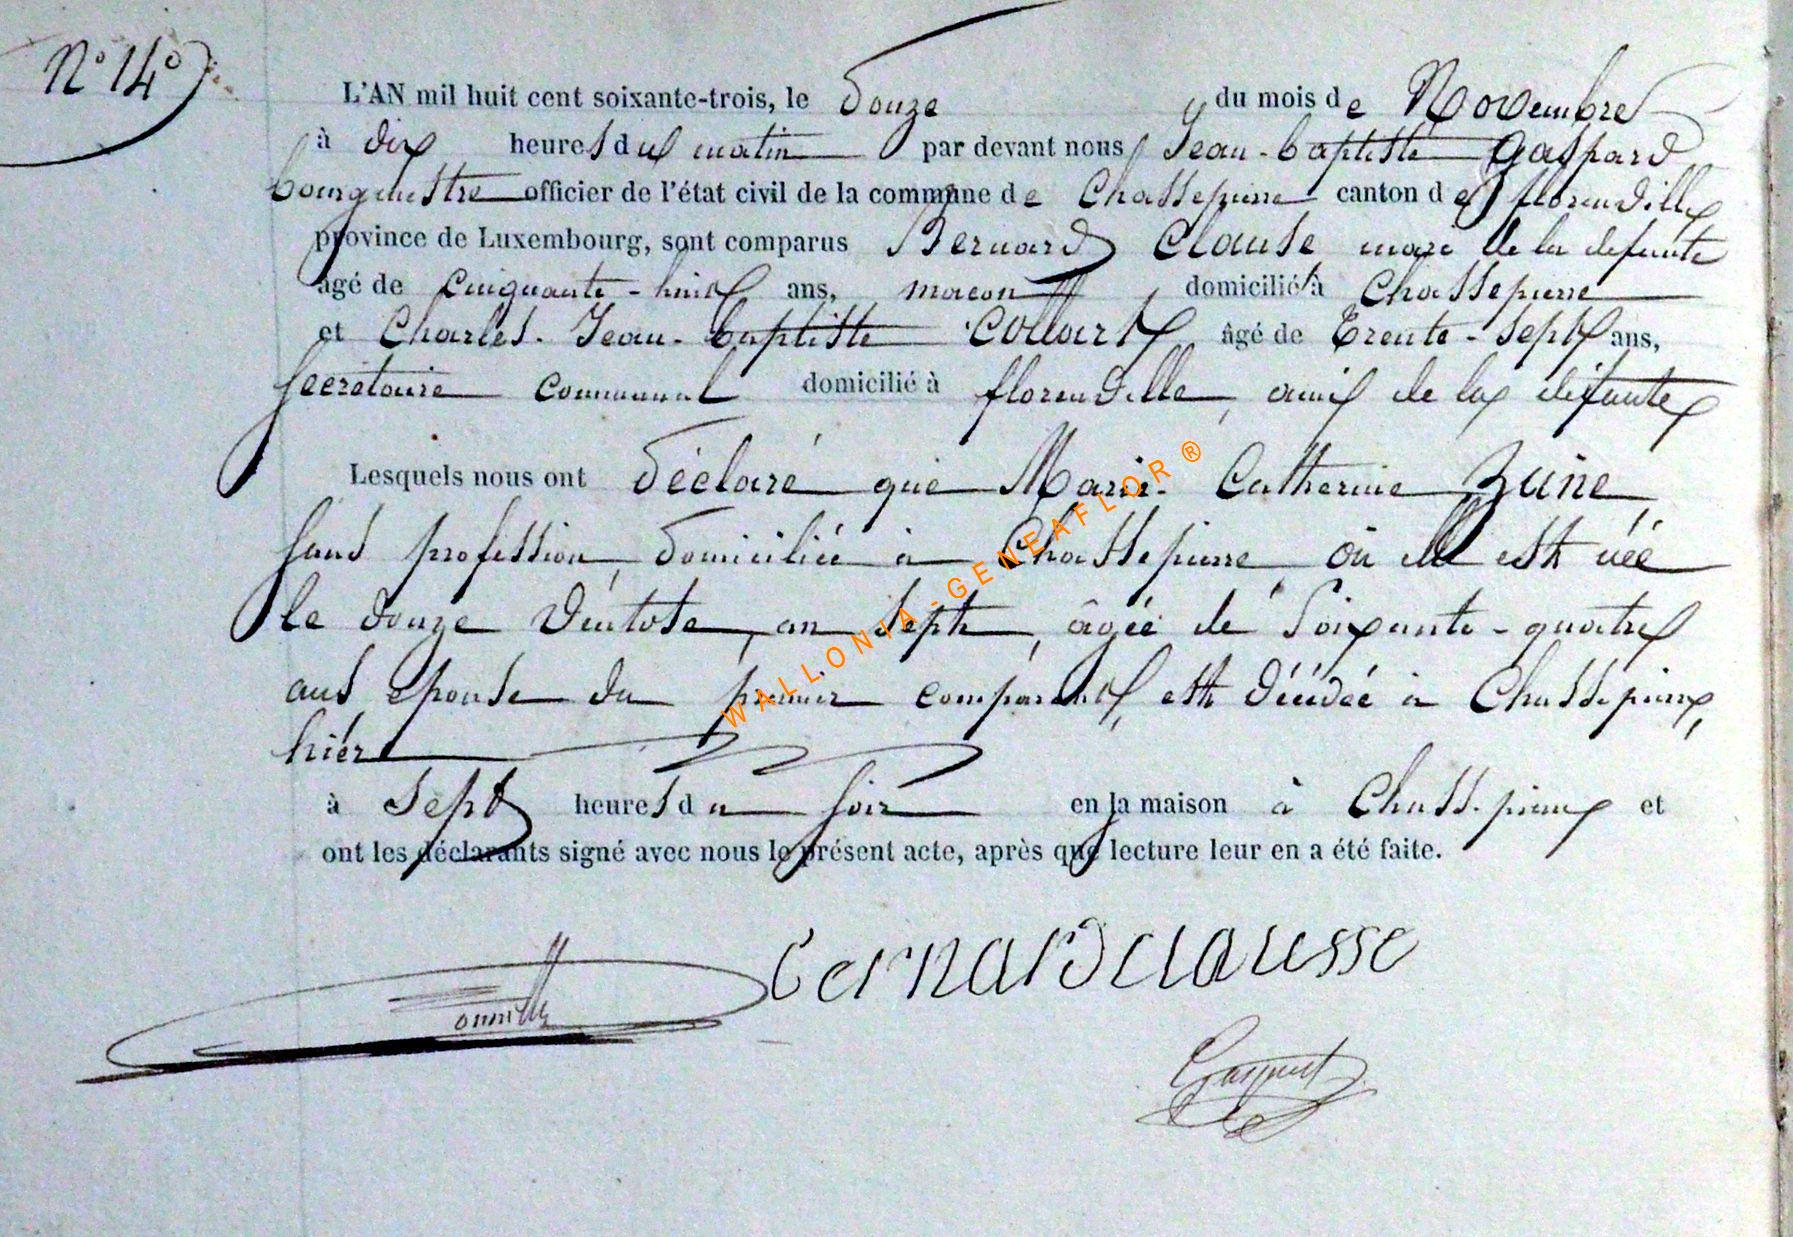 N° 14°
L'AN mil huit cent soixante-trois, le douze du mois de Novembre
à dix heures du matin par devant nous Jean-baptiste Gaspard
bourgmestre officier de l'état civil de la commune de Chassepierre canton de florenville
province de Luxembourg, sont comparus Bernard Clause mari de la defunte
âgé de Cinquante-huit ans, macon domicilié à Chassepierre
et Charles-Jean-baptiste Collart âgé de trente-sept ans,
secretaire communal domicilié à florenville, ami de la défunte
Lesquels nous ont déclaré que Marie-Catherine Zune,
sans profession, domiciliée à Chassepierre où elle est née
le douze Ventose, an sept, âgée de Soixante-quatre
ans, epouse du premier comparant, est décédée à Chassepierre,
hier
à sept heures du soir en la maison à Chassepierre et
ont les déclarants signé avec nous le présent acte, après que lecture leur en a été faite.
bernard clausse
WALLONIA-GENEAFLOR ®